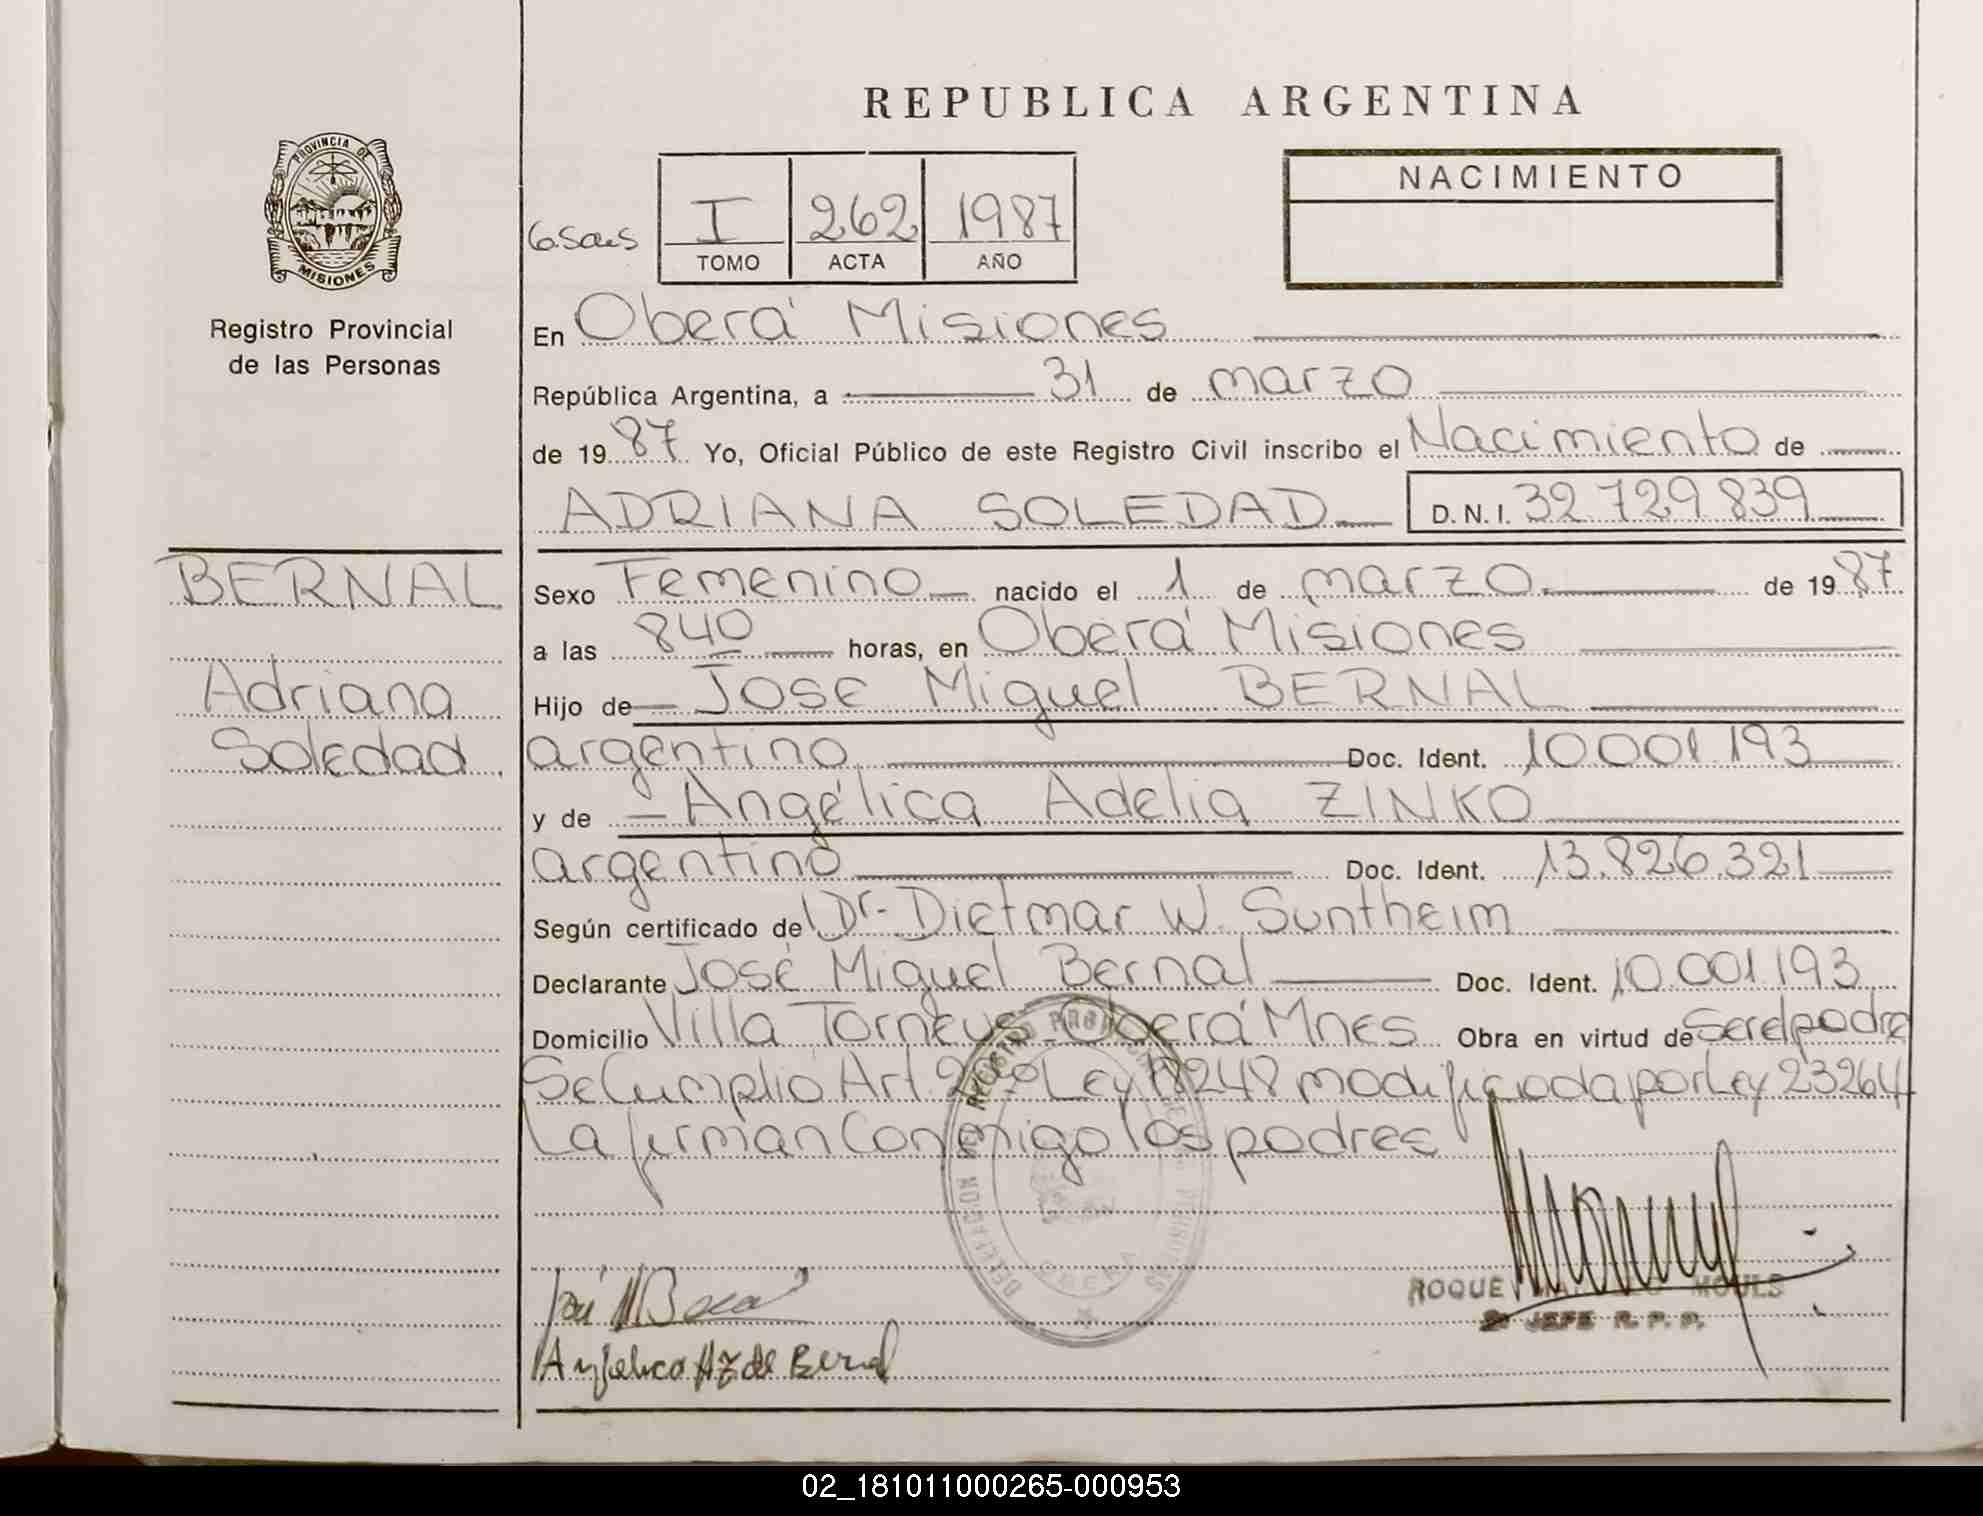 REPUBLICA ARGENTINA
PROVINCIA DE
MISIONES
Registro Provincial
de las Personas
NACIMIENTO
I 262 1987
TOMO ACTA AÑO
En Oberá Misiones
República Argentina, a 31 de marzo
de 1987 Yo, Oficial Público de este Registro Civil inscribo el Nacimiento de
ADRIANA SOLEDAD D.N.I. 32.729.839
BERNAL
Adriana
Soledad
Sexo Femenino nacido el 1 de marzo de 1987
a las 840 horas, en Oberá Misiones
Hijo de José Miguel BERNAL
argentino Doc. Ident. 10.001.193
y de Angélica Adelia ZINKO
argentina Doc. Ident. 13.826.321
Según certificado de Dr. Dietmar W. Suntheim
Declarante José Miguel Bernal Doc. Ident. 10.001.193
Domicilio Villa Torneus Oberá Mnes Obra en virtud de Ser el padre
Se Cumplio Art. 2do Ley 18248 modificada por Ley 23264
La firman Conmigo los padres
REGISTRO PROVINCIAL DE LAS PERSONAS
DELEGACION
OBERA
José M Bernal
Angelica AZ de Bernal
ROQUE MOULS
2º JEFE R. P. P.
02_181011000265-000953